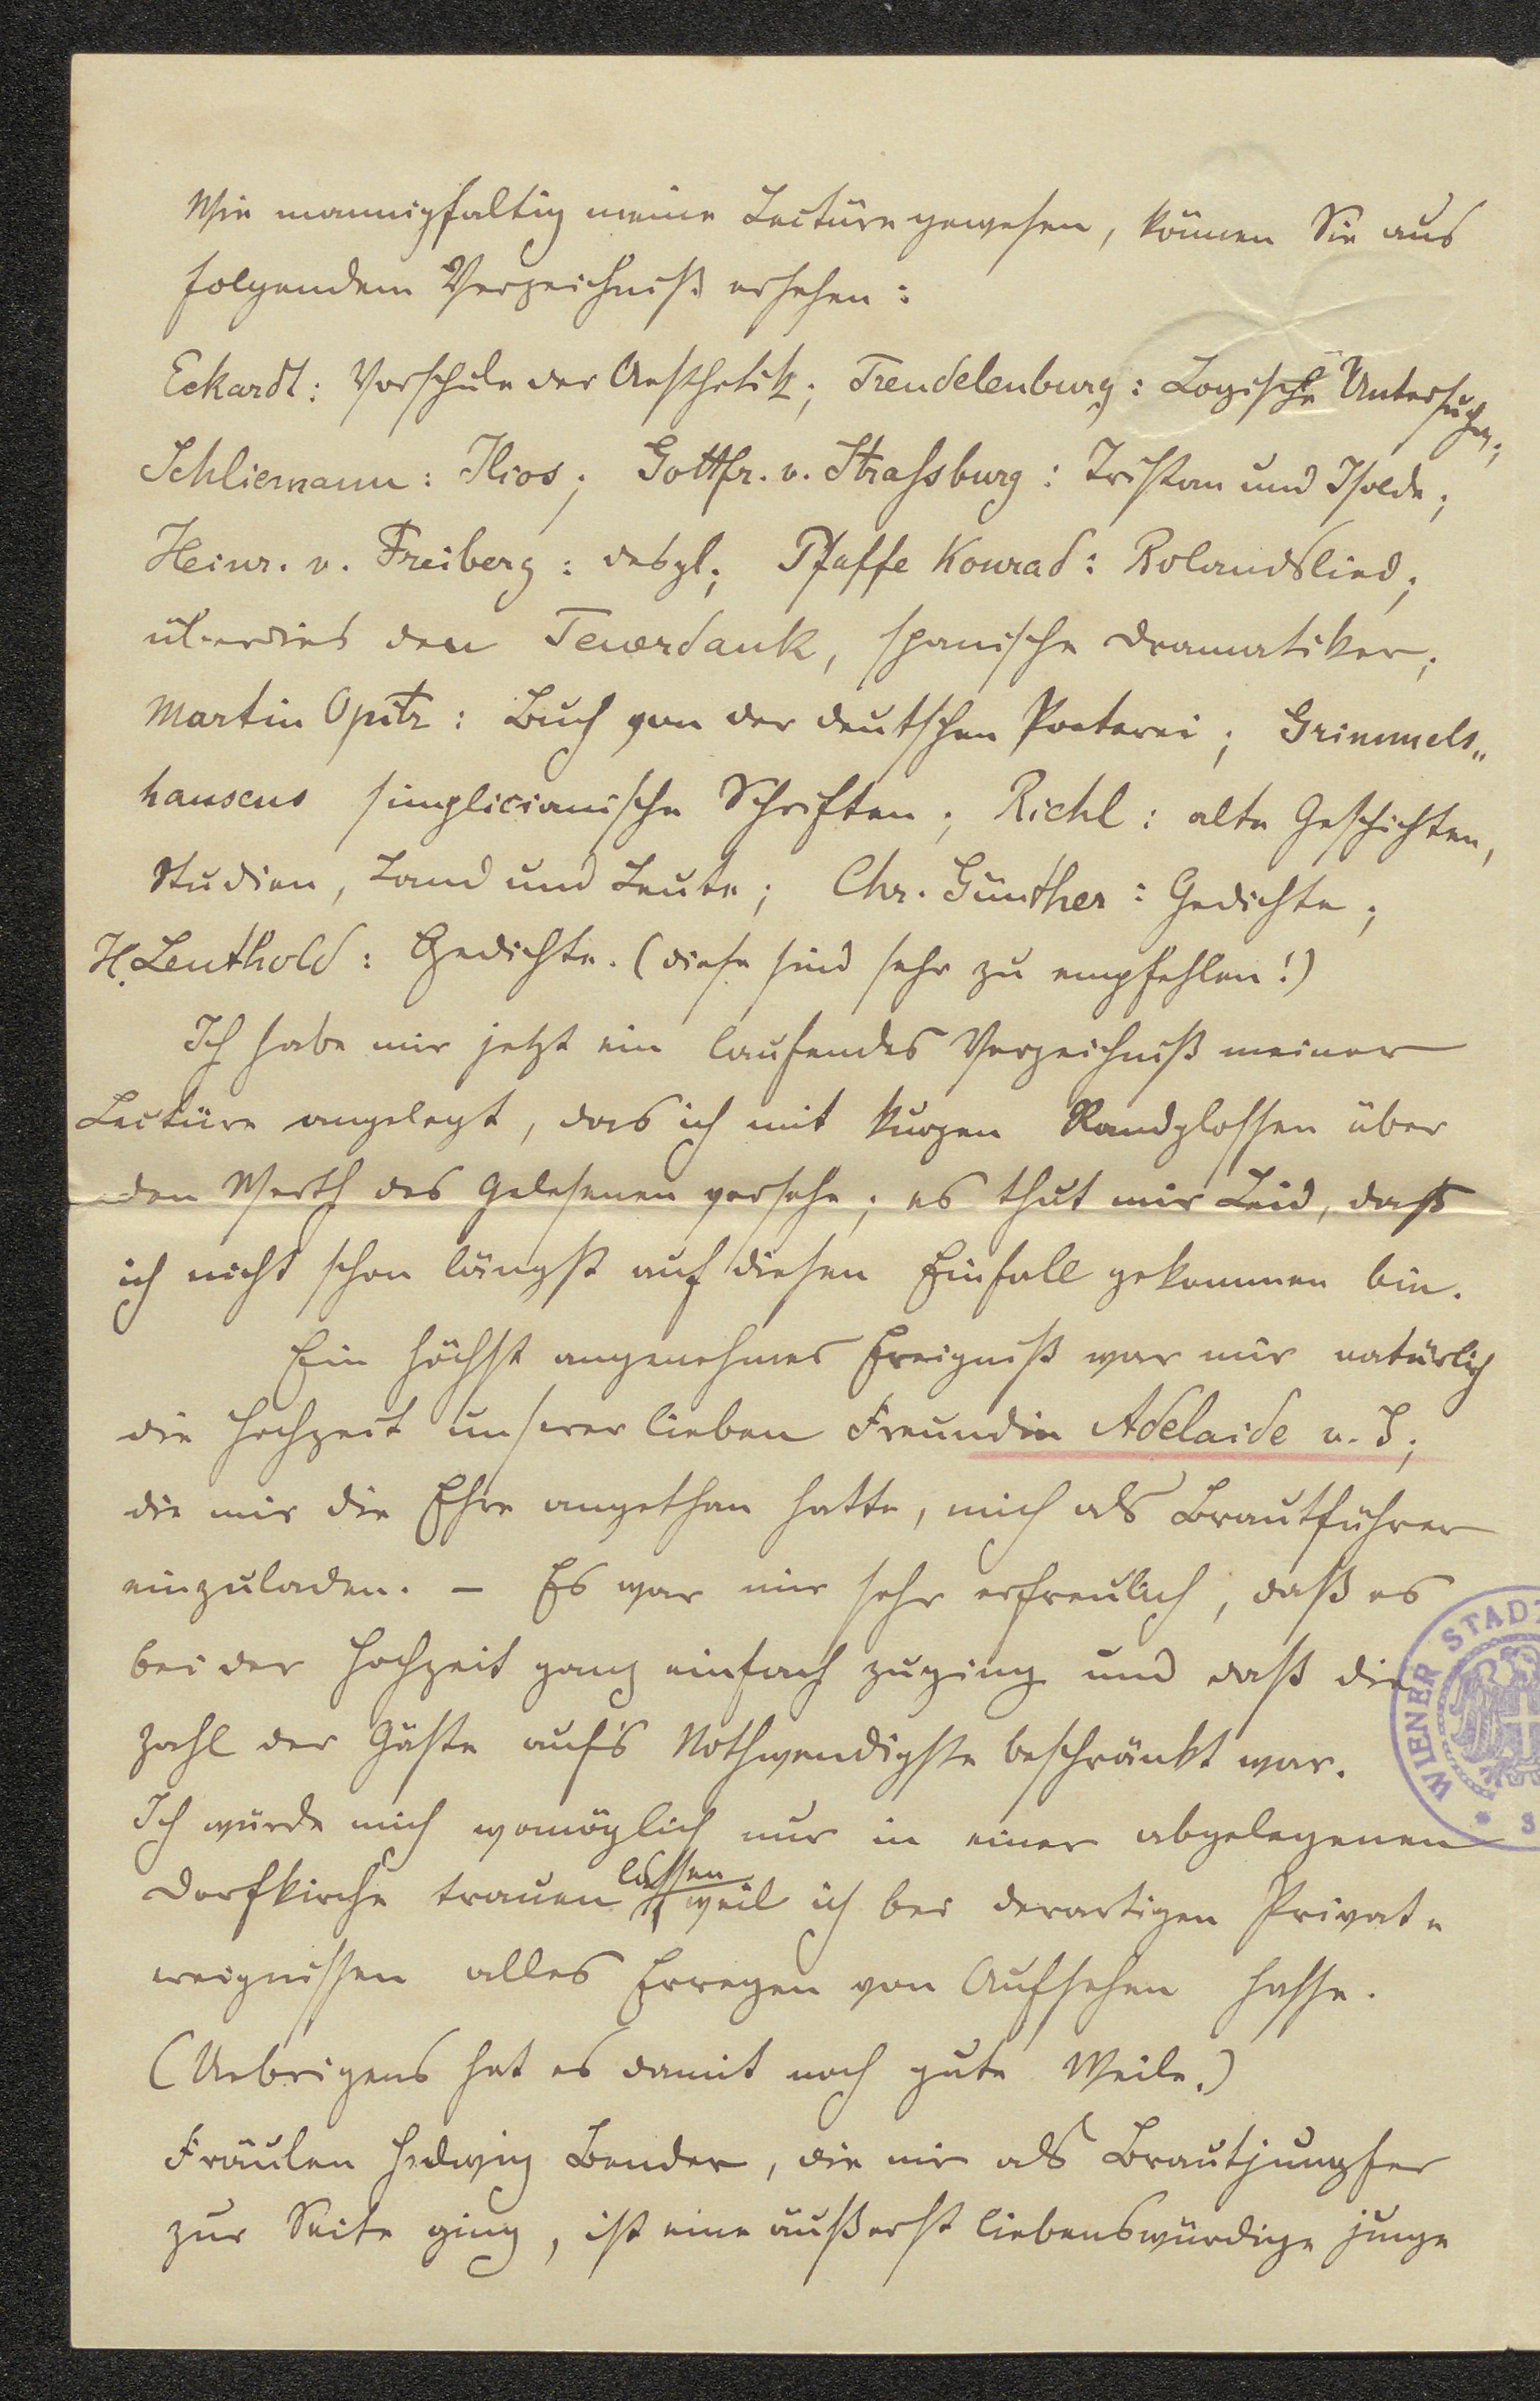 Wie mannigfaltig meine Lectüre gewesen, können Sie aus
folgendem Verzeichniß ersehen:
Eckardt: Vorschule der Aesthetik; Trendelenburg: Logische Untersuchg.;
Schliemann: Ilios; Gottfr. v. Strassburg: Tristan und Isolde;
Heinr. v. Freiberg: desgl.; Pfaffe Konrad: Rolandslied;
überdies den Teuerdank, spanische Dramatiker;
Martin Opitz: Buch von der deutschen Poeterei; Grimmels„
hausens simplicianische Schriften; Riehl: alte Geschichten,
Studien, Land und Leute; Chr. Günther: Gedichte;
H. Leuthold: Gedichte. (diese sind sehr zu empfehlen!)
Ich habe mir jetzt ein laufendes Verzeichniß meiner
Lectüre angelegt, das ich mit kurzen Randglossen über
den Werth des Gelesenen versehe; es thut mir Leid, daß
ich nicht schon längst auf diesen Einfall gekommen bin.
Ein höchst angenehmes Ereigniß war mir natürlich
die Hochzeit unserer lieben Freundin Adelaide v. J;
die mir die Ehre angethan hatte, mich als Brautführer
einzuladen. – Es war mir sehr erfreulich, daß es
bei der Hochzeit ganz einfach zuging und daß die
Zahl der Gäste auf's Nothwendigste beschränkt war.
Ich würde mich womöglich nur in einer abgelegenen
Dorfkirche trauen lassen, weil ich bei derartigen Privat„
ereignissen alles Erregen von Aufsehen hasse.
(Uebrigens hat es damit noch gute Weile.)
Fräulen Hedwig Bender, die mir als Brautjungfer
zur Seite ging, ist eine äußerst liebenswürdige junge
WIENER STADT